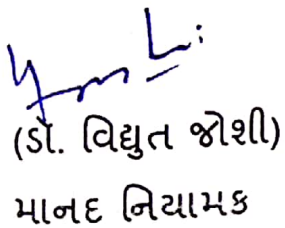 (ડૉ. વિદ્યુત જોશી)
માનદ નિયામક